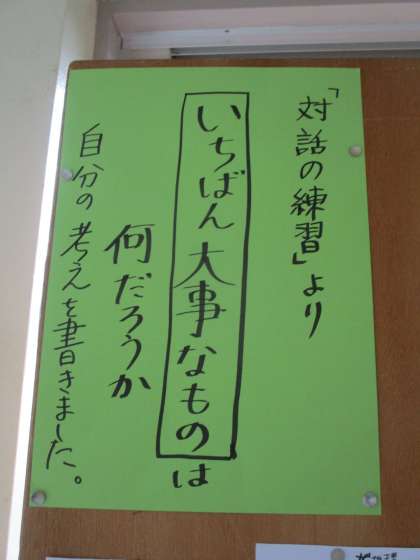 「対話の練習」より
いちばん大事なものは
何だろうか
自分の考えを書きました。